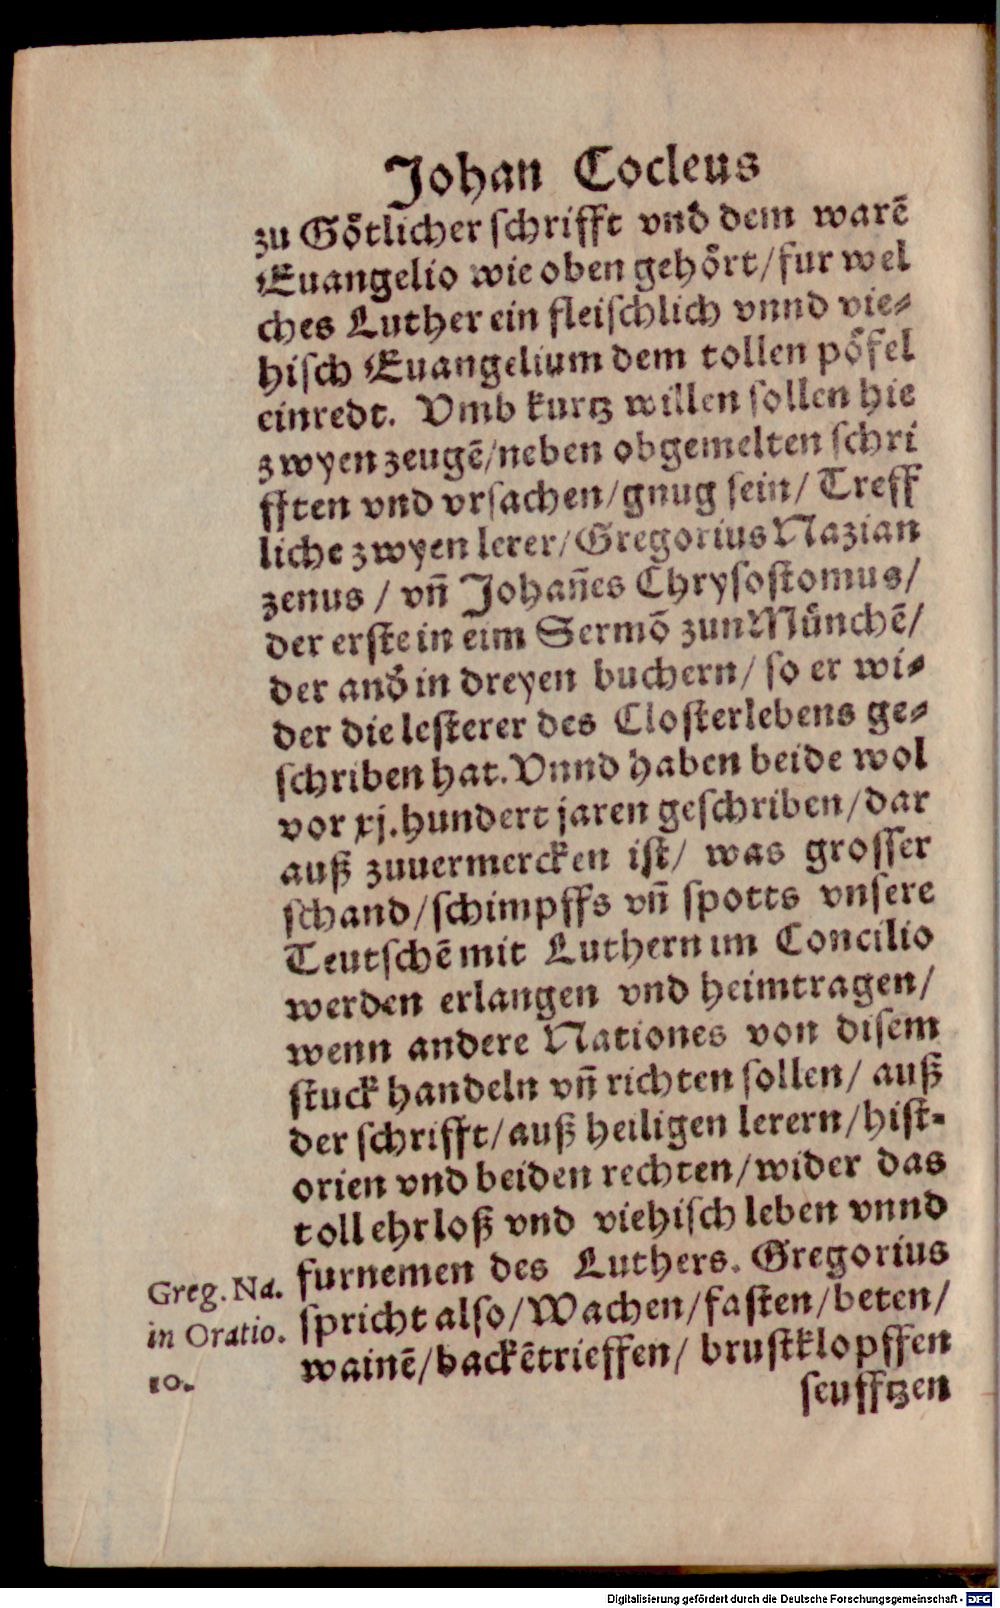 Johan Cocleus
zu Goͤtlicher ſchrifft vnd dem warē
Euangelio wie oben gehoͤrt/fur wel
ches Luther ein fleiſchlich vnnd vie⸗
hiſch Euangelium dem tollen poͤfel
einredt. Vmb kurtz willen ſollen hie
zwyen zeugē/neben obgemelten ſchri
fften vnd vrſachen/gnug ſein/ Treff
liche zwyen lerer/Gregorius Nazian
zenus / vn̄ Johan̄es Chryſoſtomus/
der erſte in eim Sermō zun Muͤnchē/
der and̕ in dreyen buchern/ ſo er wi⸗
der die leſterer des Cloſterlebens ge⸗
ſchriben hat. Vnnd haben beide wol
vor xj. hundert jaren geſchriben/dar
auß zuuermercken iſt/ was groſſer
ſchand/ſchimpffs vn̄ ſpotts vnſere
Teutſchē mit Luthern im Concilio
werden erlangen vnd heimtragen/
wenn andere Nationes von diſem
ſtuck handeln vn̄ richten ſollen/ auß
der ſchrifft/auß heiligen lerern/hiſt⸗
orien vnd beiden rechten/wider das
toll ehrloß vnd viehiſch leben vnnd
furnemen des Luthers. Gregorius
Greg. Na.
ſpricht alſo/Wachen/faſten/beten/
in Oratio.
wainē/backētrieffen/ bruſtklopffen
10.
ſeufftzen
Digitalisierung gefördert durch die Deutsche Forschungsgemeinschaft - DFG